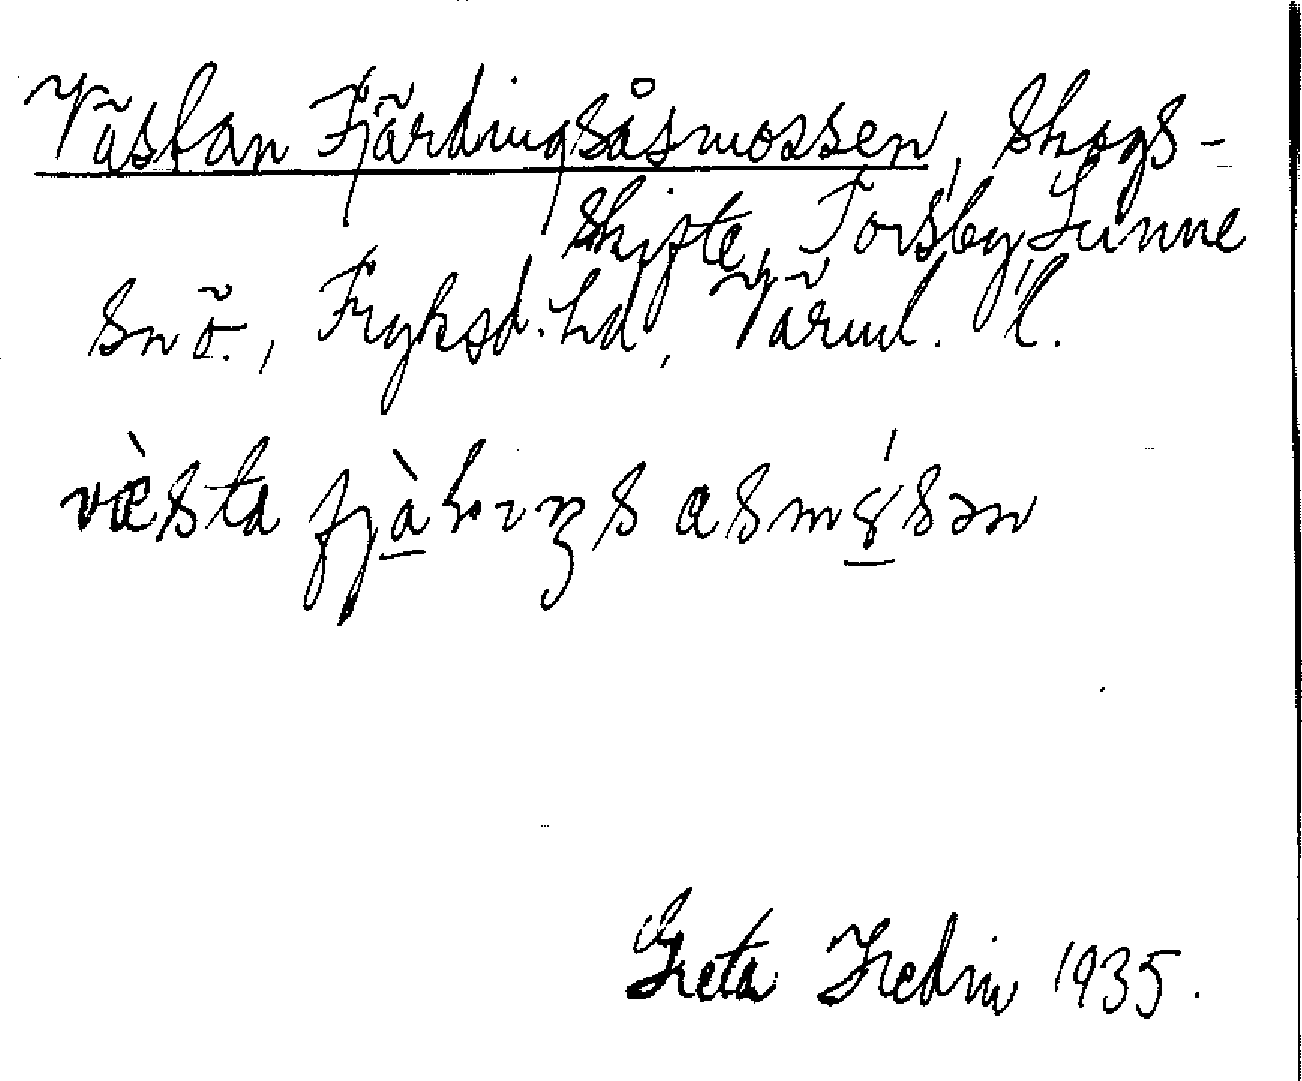 Västan Fjärdingsåsmossen, Skogs-
skifte, Torsby, Sunne
sn Ö., Fryksd. hd, Värml. l.
væ̀sta
Greta Hedin 1935.